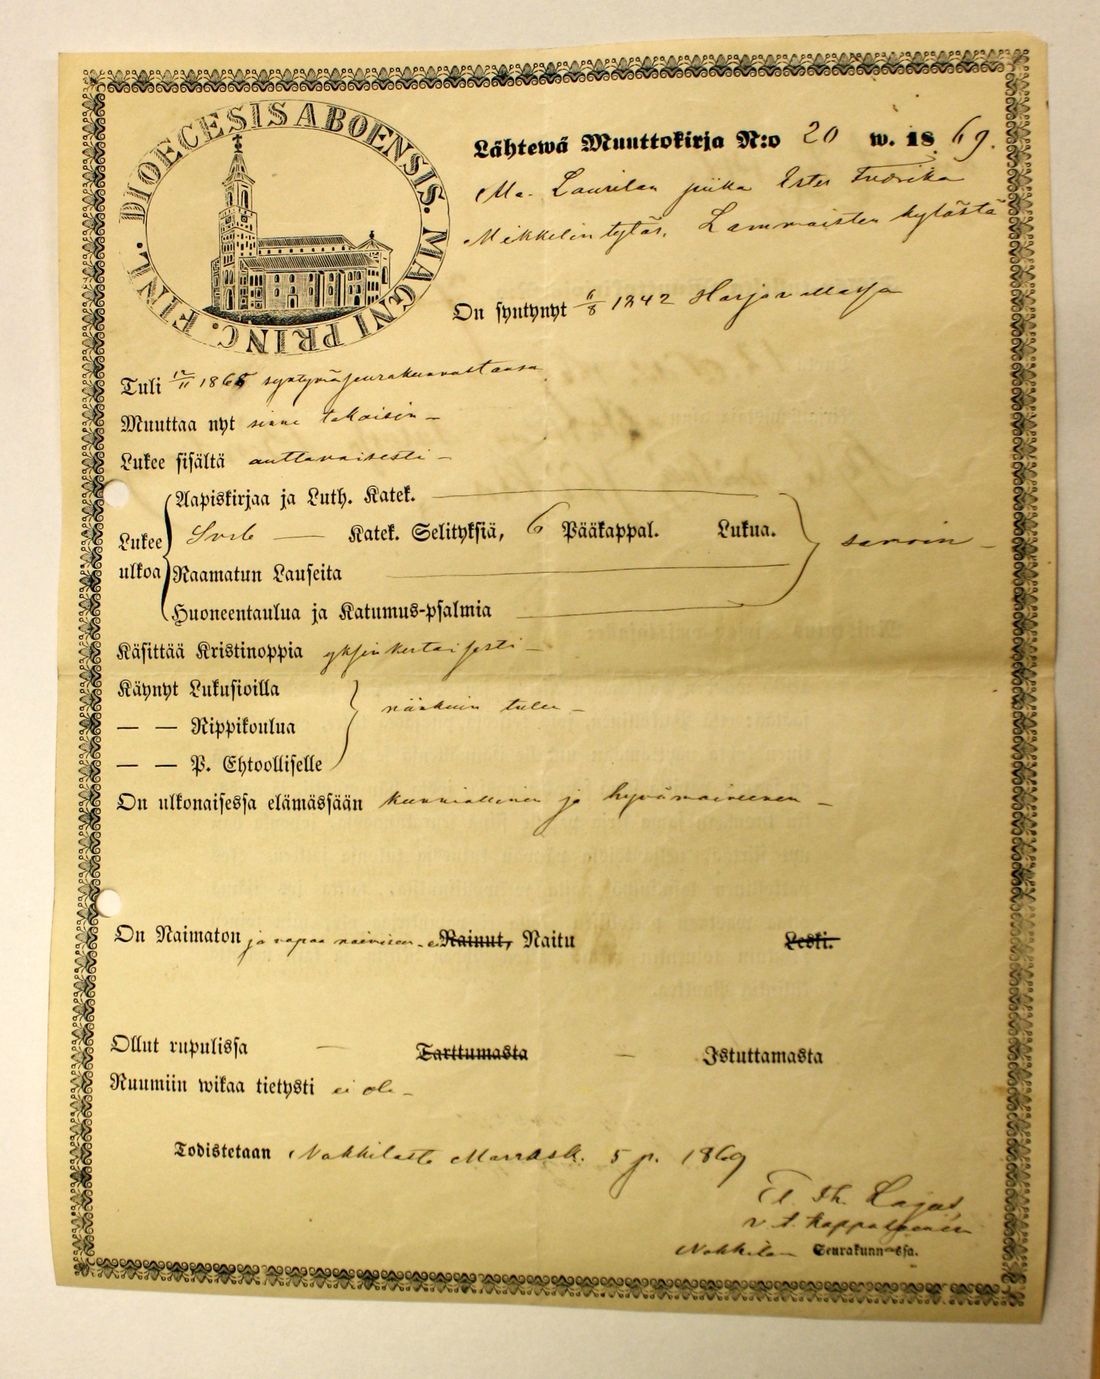 DIOECESIS ABOENSIS. MAGNI PRINC. FINL.
Lähtewä Muuttokirja N:o 20 w. 1869.
Ma. Laurilan piika Ester Fredrika
Mikkelin tytär, Lammaisten kylästä
On syntynyt 6/8 1842 Harjavallassa
Tuli 12/11 1865 syntymäseurakunnastansa
Muuttaa nyt sinne takaisin –
Lukee sisältä auttavaisesti –
Aapiskirjaa ja Luth. Katek. —
Lukee ulkoa
Sveb — Katek. Selityksiä, 6 Pääkappal. Lukua.
samoin –
Raamatun Lauseita —
Huoneentaulua ja Katumus-psalmia —
Käsittää Kristinoppia yksinkertaisesti –
Käynyt Lukusioilla
— — Rippikoulua
niinkuin tulee –
— — P. Ehtoolliselle
On ulkonaisessa elämässään kunniallinen ja hyvämaineinen –
On Naimaton ja vapaa naimiseen – Nainut, Naitu Leski.
Ollut rupulissa — Tarttumasta – Istuttamasta
Ruumiin wikaa tietysti ei ole –
Todistetaan Nakkilasta Marrask. 5 p. 1869
v. t. kappalainen
Nakkilan Seurakunnassa.